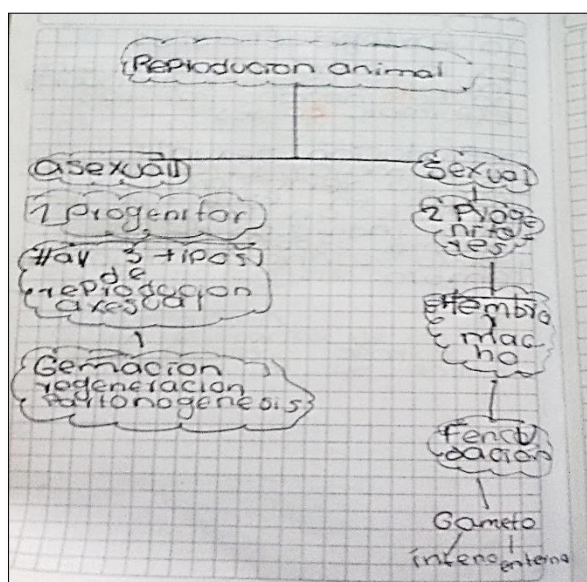 Reproducion animal
asexual
1 Progenitor
Hay 3 tipos
de
reproducion
axesual
Gemacion
regeneración
Partonogenesis
Sexual
2 Proge
nito
res
Hembra
y
mac
ho
Fencu
dación
Gameto
inteno enterno